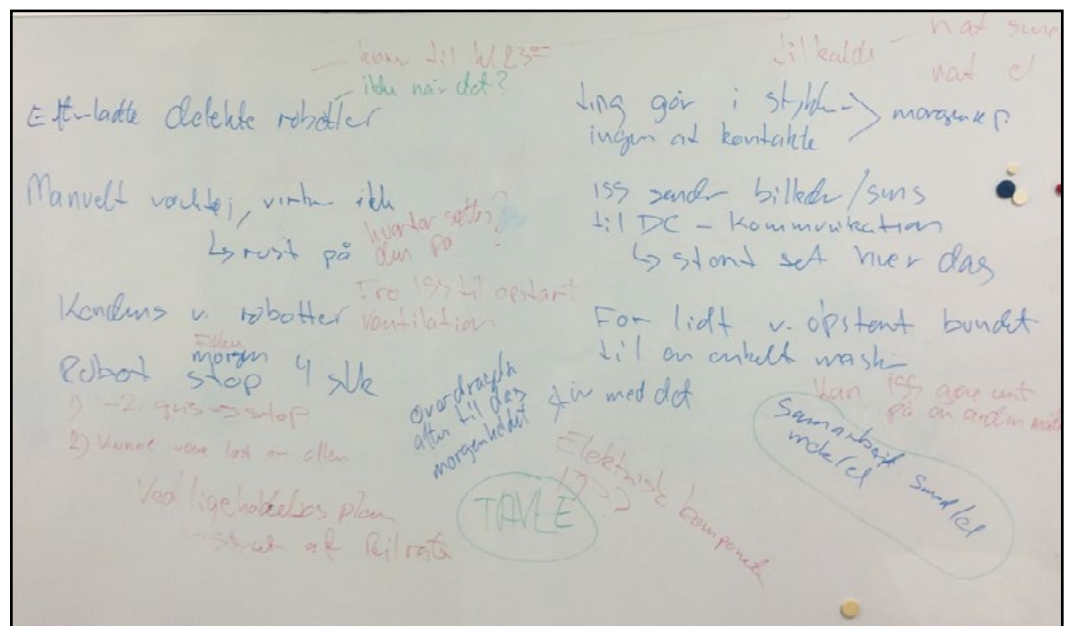 kom til kl 23
ikke når det?
Efterladte defekte robotter
Manuelt værktøj, virker ikk
↳ rust på
hvorfor sættes
den på ?
Kondens v. robotter
Fra ISS til opstart
ventilation
morgen
Robot stop 4 stk
1) 1-2. => stop
2) Kunne være løst om aften
Vedligeholdelses plan
af feilrate
overdragelse
aften til dag
morgenholdet
skriv med det
TAVLE
Elektrisk komponent
tilkalde - nat smed
nat el
ting går i stykker > morgen
ingen at kontakte
ISS sender billeder/sms
til DC - kommunikation
↳ stort set hver dag
For lidt v. opstart bundet
til en enkelt mask
Kan ISS gøre
på en anden
Samarbejde smed/el